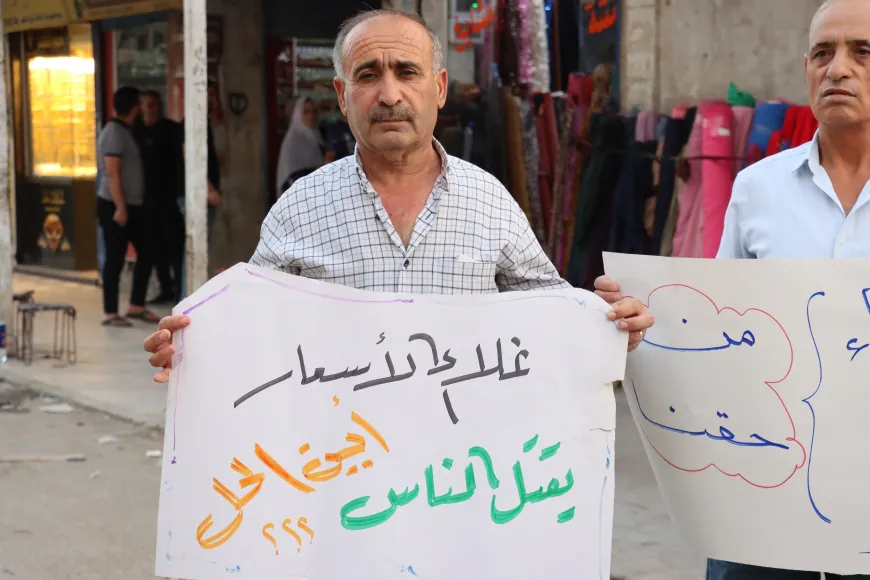 غلاء الأسعار
يقتل الناس
أين الحل ؟؟؟
من
حقنا